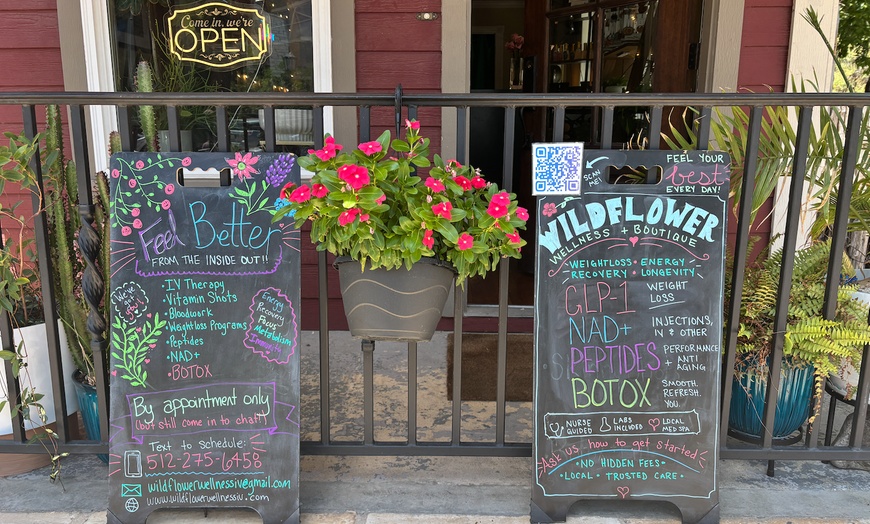 Come in, we're
OPEN
Feel Better
FROM THE INSIDE OUT!!
We've got
• IV Therapy
• Vitamin Shots
• Bloodwork
• Weightloss Programs
• Peptides
• NAD+
• BOTOX
Energy
Recovery
Focus
Metabolism
Immunity
By appointment only
(but still come in to chat!)
Text to schedule:
512-275-6458
wildflowerwellnessiv@gmail.com
www.wildflowerwellnessiv.com
SCAN
ME!
FEEL YOUR
best
EVERY DAY!
WILDFLOWER
WELLNESS + BOUTIQUE
WEIGHTLOSS • ENERGY
RECOVERY • LONGEVITY
GLP-1 WEIGHT
LOSS
NAD+ INJECTIONS,
IV + OTHER
PEPTIDES PERFORMANCE
+ ANTI
AGING
BOTOX SMOOTH.
REFRESH.
YOU.
NURSE
GUIDED
LABS
INCLUDED
LOCAL
MED SPA
Ask us how to get started
• NO HIDDEN FEES •
• LOCAL • TRUSTED CARE •